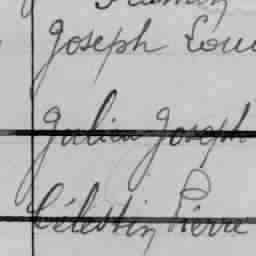 Joseph Loui
Julien Joseph
Célestin Pierre